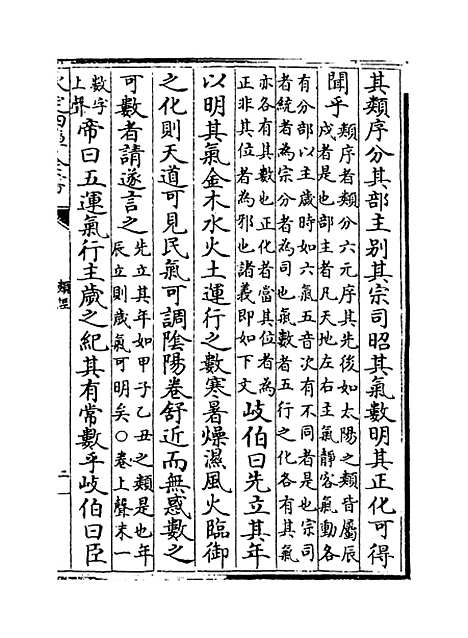 其類序分其部主别其宗司昭其氣數明其正化可得
聞乎類序者類分六元序其先後如太陽之類皆屬辰
戌者是也部主者凡天地左右主氣靜客氣動各
有分部以主歲時如六氣五音次有不同者是也宗司
者統者為宗分者為司也氣數者五行之化各有其氣
亦各有其數也正化者當其位者為
正非其位者為邪也諸義即如下文岐伯曰先立其年
以明其氣金木水火土運行之數寒暑燥濕風火臨御
之化則天道可見民氣可調陰陽卷舒近而無惑數之
可數者請遂言之先立其年如甲子乙丑之類是也年
辰立則歲氣可明矣○卷上聲末一
數字
上聲帝曰五運氣行主歲之紀其有常數乎岐伯曰臣
類經